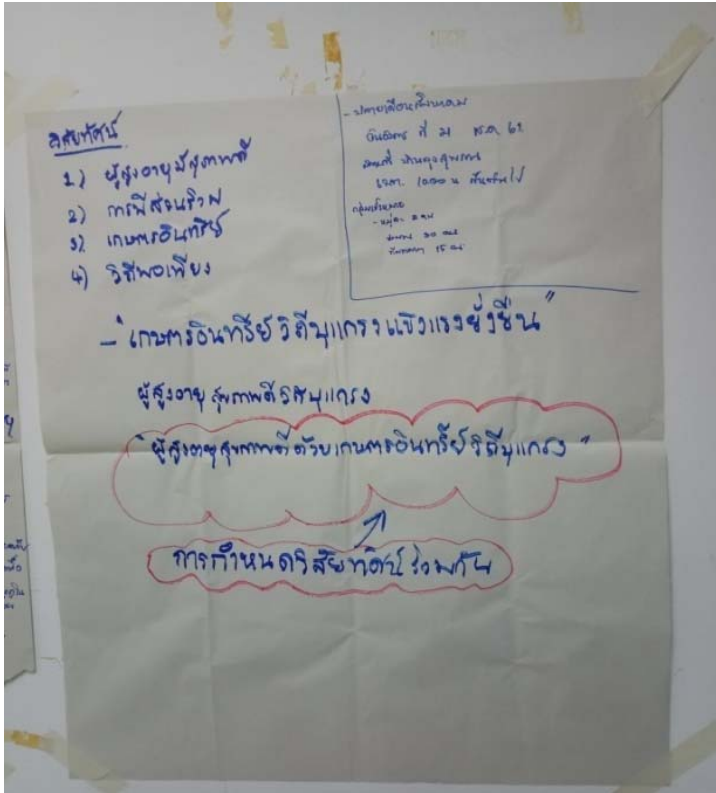 วิสัยทัศน์
1) ผู้สูงอายุมีสุขภาพดี
2) การมีส่วนร่วม
3) เกษตรอินทรีย์
4) วิถีพอเพียง
- ปลายเดือนพฤษภาคม
วันอังคาร ที่ 21 พ.ค. 62
สถานที่
เวลา 10.00 น เป็นต้นไป
กลุ่มเป้าหมาย
30 คน
15 คน
- "เกษตรอินทรีย์วิถีบุแกรงแข็งแรงยั่งยืน"
ผู้สูงอายุสุขภาพดีวิถีบุแกรง
"ผู้สูงอายุสุขภาพดีด้วยเกษตรอินทรีย์วิถีบุแกรง"
การกำหนดวิสัยทัศน์ร่วมกัน